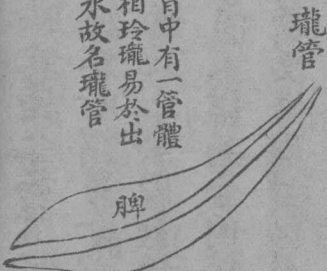 瓏管
中有一管體
相玲瓏易於出
水故名瓏管
脾